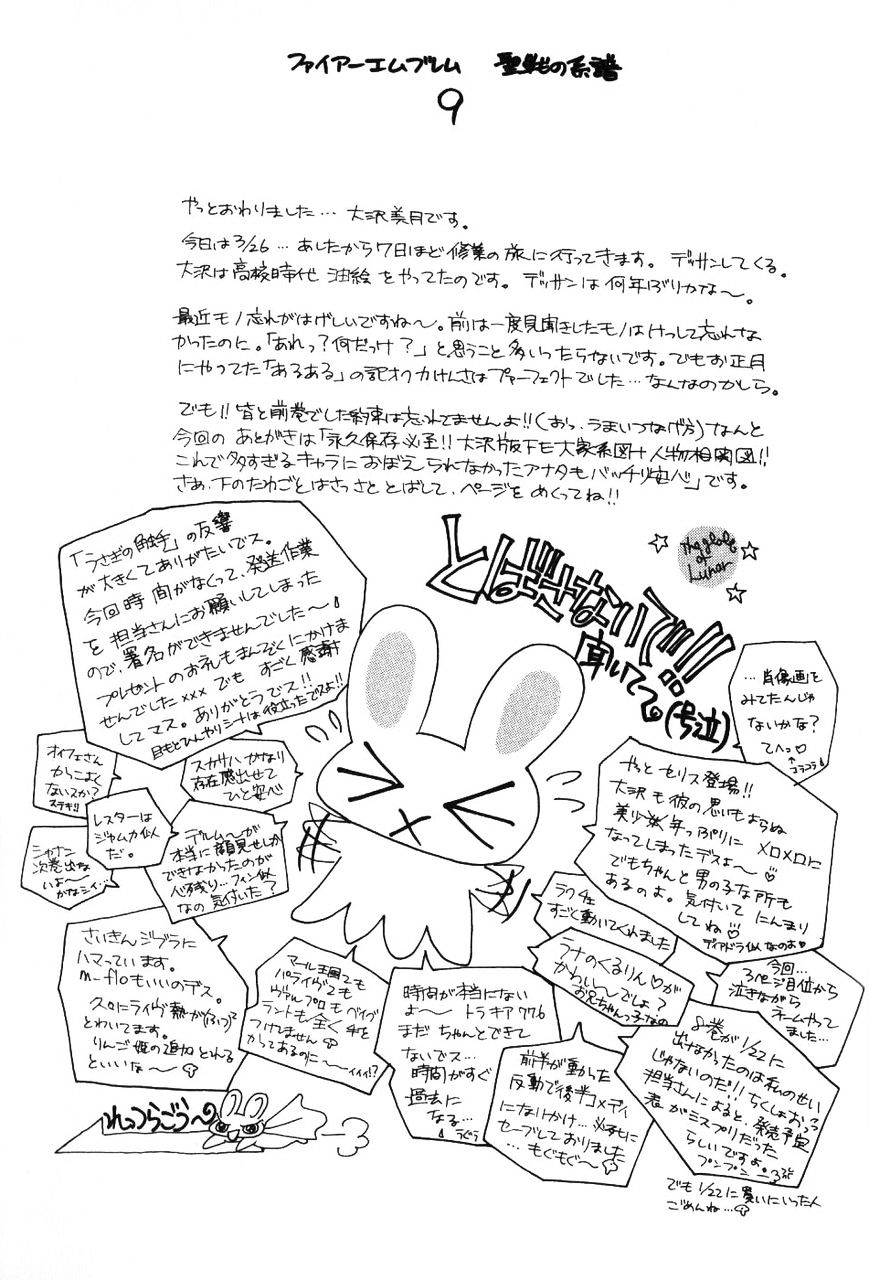 ファイアーエムブレム 聖戦の系譜
9
やっとおわりました… 大沢美月です。
今日は3/26… あしたから7日ほど修業の旅に行ってきます。デッサンしてくる。
大沢は高校時代 油絵をやってたのです。デッサンは何年ぶりかな〜。
最近モノ忘れがはげしいですね〜。前は一度見聞きしたモノはけっして忘れな
かったのに。「あれっ?何だっけ?」と思うこと多いったらないです。でもお正月
にやってた「あるある」の記オク力けんさはパーフェクトでした…なんなのかしら。
でも!!皆と前巻でした約束は忘れてませんよ!!(おっ、うまいつなげ方)なんと
今回の あとがきは「永久保存必至!!大沢版下モ大家系図+人物相関図!!
これで多すぎるキャラにおぼえられなかったアナタもバッチリ安心」です。
さぁ、下のたわごとはさっさととばして、ページをめくってね!!
「うさぎの触手」の反響
が大きくてありがたいでス。
今回時間がなくって、発送作業
を担当さんにお願いしてしまった
ので、署名ができませんでした〜
プレゼントのお礼もまんぞくにかけま
せんでした××× でも すごく感謝
してマス。ありがとうでス!!
目もとひんやりシートは役立ったでスよ!!
とばさないで!!
聞いてて。(号泣)
The globe
of
Lunar
…肖像画を
みてたんじゃ
ないかな?
てへっ♡
↑
コラコラ
オイフェさん
かっこよく
ないスか?
ステキ!!
スカサハ かなり
存在感出せて
ひと安心
レスターは
ジャムカ似
だ。
シャナン
次巻出な
いよ〜
かなシイ…
デルム〜が
本当に顔見せしか
できなかったのが
心残り…フィン似
なの 気付いた?
やっとセリス登場!!
大沢も彼の思いもよらぬ
美少年っぷりに メロメロに
なってしまったデスよ〜♡
でもちゃんと男の子な所も
あるのよ。気付いて にんまり
してね♡
ディアドラ似なのよ♡
ラクチェ
すごく動いてくれました
ラナのくるりん♡が
かわい〜でしょ?
お兄ちゃんっ子なの
今回…
3ページ目位から
泣きながら
ネームやって
ました…
さいきんジブラに
ハマっています。
m-floもいいのデス。
久々にライヴ熱が(ふつ?)
とわいてます。
りんご姫の追加 とれる
といいな〜
マール王国2も
パライヴ2も
ヴァルプロも ベイグ
ラントも全く手を
つけてません
かってあるのに〜
ィィィ!?
時間が本当にない
よ〜 トラキア776
まだ ちゃんとできて
ないでス…
時間がすぐ
過去に
なる…
前半が重かった
反動で後半コメディ
になりかけ…必死に
セーブしておりました
…もぐもぐ〜
8巻が1/22に
出なかったのは私のせい
じゃないのだ!!ちくしょおぅっ
担当さんによると、発売予定
表がミスプリだった
らしいですよ。
プンプン
でも1/22に買いにいった人
ごめんね…
れっつらごう〜